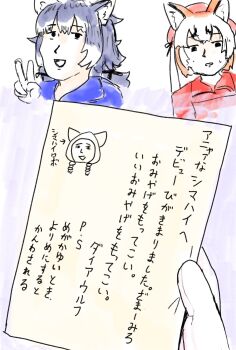 アニアなシマハイへ
デビューびがきまりました。ざまーみろ
おみやげをもってこい。
いいおみやげをもってこい。
ダイアウルフ
P.S
めがかゆいとき、
よりめにすると
かんわされる